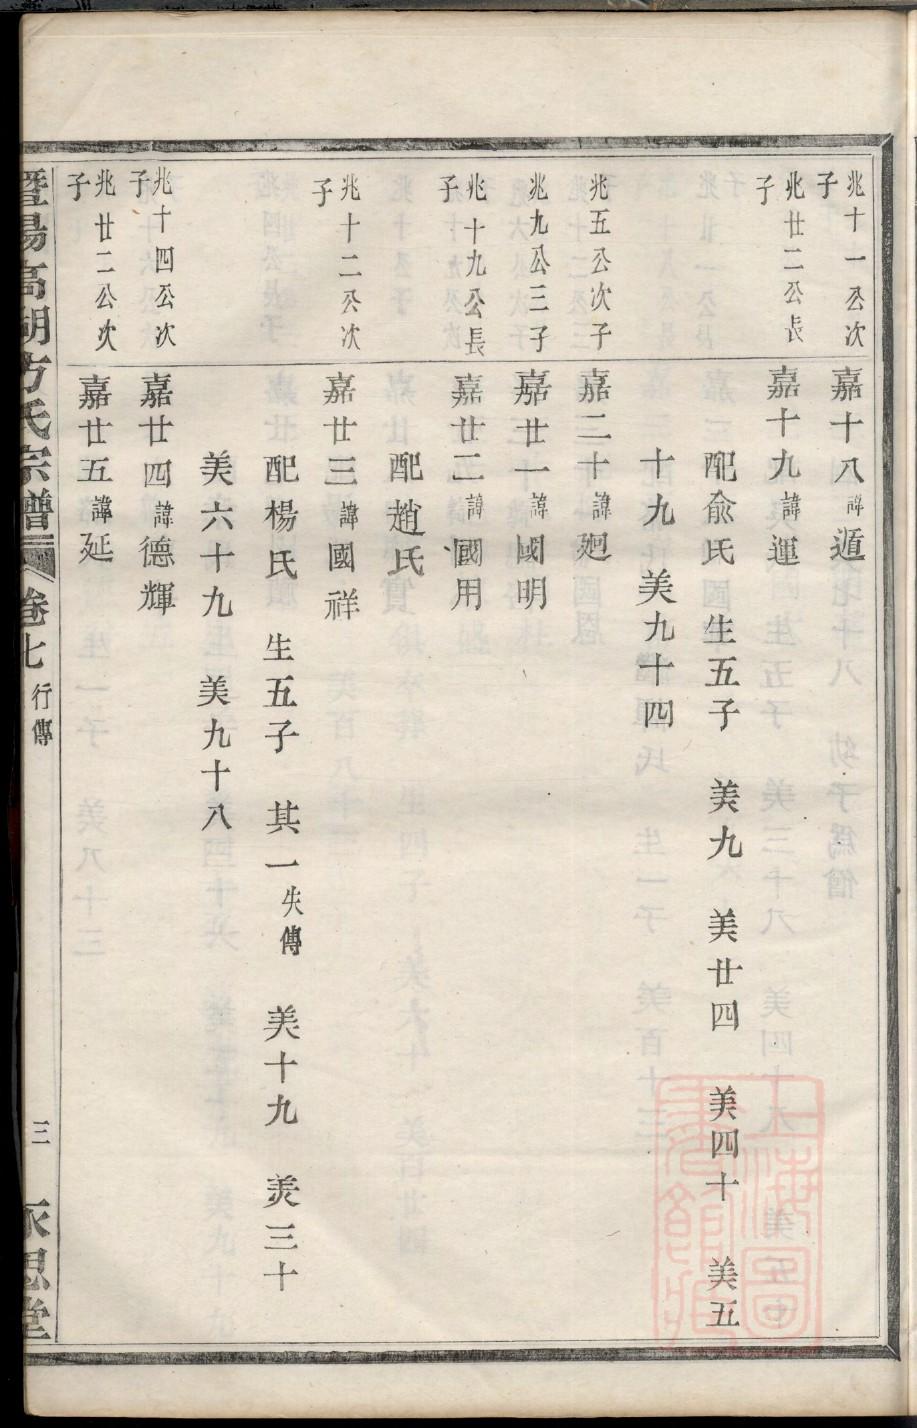 兆十一公次子
嘉十八諱遁
兆廿二公長子
嘉十九諱運
配兪氏 生五子 美九 美廿四 美四十 美五
十九 美九十四
兆五公次子
嘉二十諱廻
兆九公三子
嘉廿一諱國明
兆十九公長子
嘉廿二諱國用
配趙氏
兆十二公次子
嘉廿三諱國祥
配楊氏 生五子 其一失傳 美十九 美三十
美六十九 美九十八
兆十四公次子
嘉廿四諱德輝
兆廿二公次子
嘉廿五諱延
暨陽高湖方氏宗譜 卷七 行傳 三 永思堂
上海圖書館藏